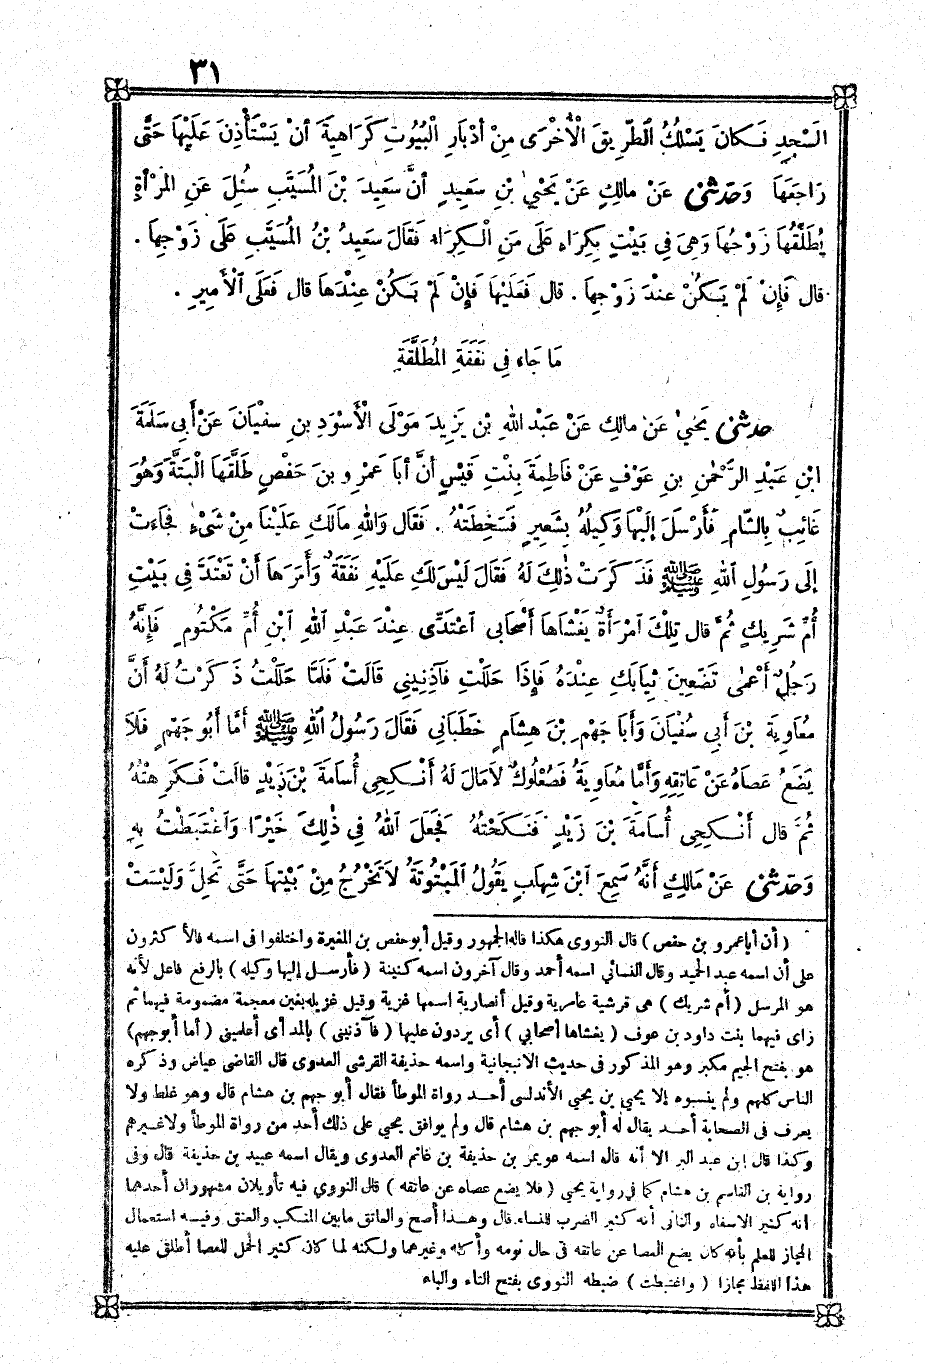 ٣١
المَسْجِدِ فَكانَ يَسْلُكُ الطَّرِيقَ الْأُخْرَى مِنْ أَدْبَارِ الْبُيُوتِ كَرَاهِيَةَ أَنْ يَسْتَأْذِنَ عَلَيْهَا حَتَّى
رَاجَعَهَا وَحَدَّثَنِي عَنْ مالِكٍ عَنْ يَحْيَ بْنِ سَعِيدٍ أَنَّ سَعِيدَ بْنَ المُسَيَّبِ سُئِلَ عَنِ المَرْأَةِ
يُطَلِّقُهَا زَوْجُهَا وَهِيَ فِي بَيْتٍ بِكِرَاءٍ عَلَى مَنِ الْكِرَاءُ فَقَالَ سَعِيدُ بْنُ المُسَيَّبِ عَلَى زَوْجِهَا .
قال فَإِنْ لَمْ يَكُنْ عِنْدَ زَوْجِهَا . قال فَعَلَيْهَا فَإِنْ لَمْ يَكُنْ عِنْدَهَا قال فَعَلَى الْأَمِيرِ .
مَا جَاءَ فِي نَفَقَةِ المُطَلَّقَةِ
حدثنى يَحْيَ عَنْ مالِكٍ عَنْ عَبْدِ اللهِ بْنِ يَزِيدَ مَوْلَى الْأَسْوَدِ بنِ سفْيَانَ عَنْ أَبِي سَلَمَةَ
ابْنِ عَبْدِ الرَّحْمنِ بنِ عَوْفٍ عَنْ فَاطِمَةَ بِنْتِ قَيْسٍ أَنَّ أَبَا عَمْرِو بنَ حَفْصٍ طَلَّقَهَا الْبَتَّةَ وَهُوَ
غَائِبٌ بِالشَّامِ فَأَرْسَلَ إِلَيْهَا وَكِيلُهُ بِشَعِيرٍ فَسَخِطَتْهُ . فَقَال وَاللهِ مَالَكِ عَلَيْنَا مِنْ شَيْءٍ فَجَاءَتْ
إِلَى رَسُولِ اللهِ ﷺ فَذَكَرَتْ ذٰلِكَ لَهُ فَقَالَ لَيْسَ لَكِ عَلَيْهِ نَفَقَةٌ وَأَمَرَهَا أَنْ تَعْتَدَّ فِي بَيْتِ
أُمِّ شَرِيكٍ ثُمَّ قال تِلْكَ امْرَأَةٌ يَغْشَاهَا أَصْحَابِي اعْتَدِّى عِنْدَ عَبْدِ اللهِ ابْنِ أُمِّ مَكْتُومٍ فَإِنَّهُ
رَجُلٌ أَعْمَى تَضَعِينَ ثِيَابَكِ عِنْدَهُ فَإِذَا حَلَلْتِ فَآذِنِينِي قَالَتْ فَلَمَّا حَلَلْتُ ذَكَرْتُ لَهُ أَنَّ
مُعَاوِيَةَ بْنَ أَبِي سُفْيَانَ وَأَبَا جَهْمِ بْنَ هِشَامٍ خَطَبَانِي فَقَالَ رَسُولُ اللهِ ﷺ أَمَّا أَبُو جَهْمٍ فَلاَ
يَضَعُ عَصَاهُ عَنْ عَاتِقِهِ وَأَمَّا مُعَاوِيَةُ فَصُعْلُوكٌ لاَمَالَ لَهُ أَنْكِحِى أُسَامَةَ بْنَ زَيْدٍ قالتْ فَكَرِهْتُهُ
ثُمَّ قال أَنْكِحِى أُسَامَةَ بْنَ زَيْدٍ فَنَكَحْتُهُ فَجَعَلَ اللهُ فِي ذٰلِكَ خَيْرًا وَاغْتَبَطْتُ بِهِ
وَحَدَّثَنِي عَنْ مَالِكٍ أَنَّهُ سَمِعَ ابْنَ شِهَابٍ يَقُولُ الْمَبْتُوتَةُ لاَ تَخْرُجُ مِنْ بَيْتِهَا حَتَّى تَحِلَّ وَلَيْسَتْ
( أن أباعمرو بن حفص ) قال النووى هكذا قاله الجمهور وقيل أبوحفص بن المغيرة واختلفوا فى اسمه فالأكثرون
على أن اسمه عبد الحميد وقال النسائي اسمه أحمد وقال آخرون اسمه كنيته ( فأرسل إليها وكيله ) بالرفع فاعل لأنه
هو المرسل ( أم شريك ) هى قرشية عامرية وقيل أنصارية اسمها غزية وقيل غزيلة بغين معجمة مضمومة فيهما ثم
زاى فيهما بنت داود بن عوف ( يغشاها أصحابي ) أى يردون عليها ( فآذنيني ) بالمد أى أعلميني ( أما أبوجهم )
هو بفتح الجيم مكبر وهو المذكور فى حديث الانبجانية واسمه حذيفة القرشى العدوى قال القاضى عياض وذكره
الناس كلهم ولم ينسبوه إلا يحي بن يحي الأندلسى أحد رواة الموطأ فقال أبو جهم بن هشام قال وهو غلط ولا
يعرف فى الصحابة أحد يقال له أبو جهم بن هشام قال ولم يوافق يحي على ذلك أحد من رواة الموطأ ولاغيرهم
وكذا قال ابن عبد البر الا أنه قال اسمه عويمر بن حذيفة بن غانم العدوى ويقال اسمه عبيد بن حذيفة قال وفى
رواية بن القاسم بن هشام كما فى رواية يحي ( فلا يضع عصاه عن عاتقه ) قال النووي فيه تأويلان مشهوران أحدهما
انه كثير الاسفار والثانى أنه كثير الضرب للنساء قال وهذا أصح والعاتق مابين المنكب والعنق وفيه استعمال
المجاز للعلم بأنه كان يضع العصا عن عاتقه فى حال نومه وأكله وغيرهما ولكنه لما كان كثير الحمل للعصا أطلق عليه
هذا اللفظ مجازا ( واغتبطت ) ضبطه النووى بفتح التاء والباء